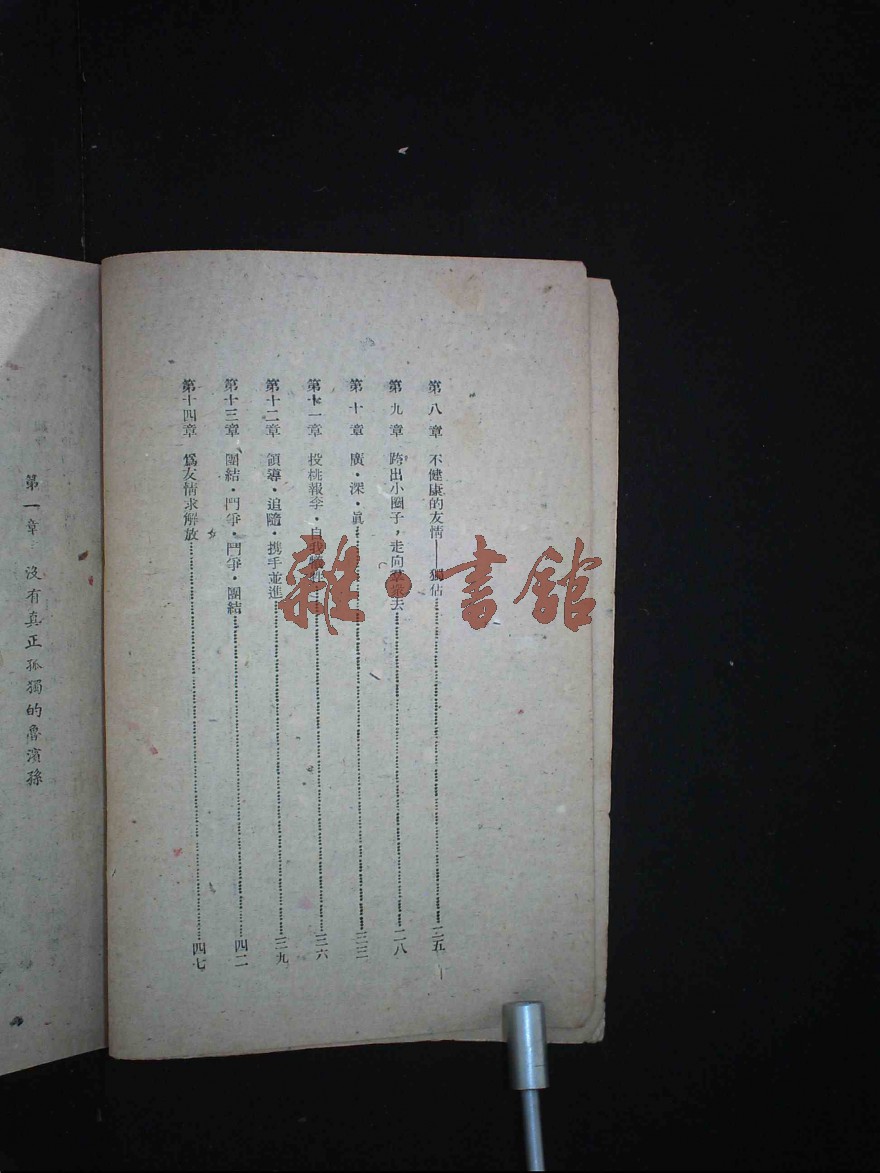 第八章 不健康的友情——獨佔……二五
第九章 跨出小圈子，走向羣衆去……二八
第十章 廣・深・眞……三三
第十一章 投桃報李・自我犧牲……三六
第十二章 領導・追隨・携手並進……三九
第十三章 團結・鬥爭・鬥爭・團結……四二
第十四章 爲友情求解放……四七
第一章 沒有真正孤獨的魯濱孫
雜・書館